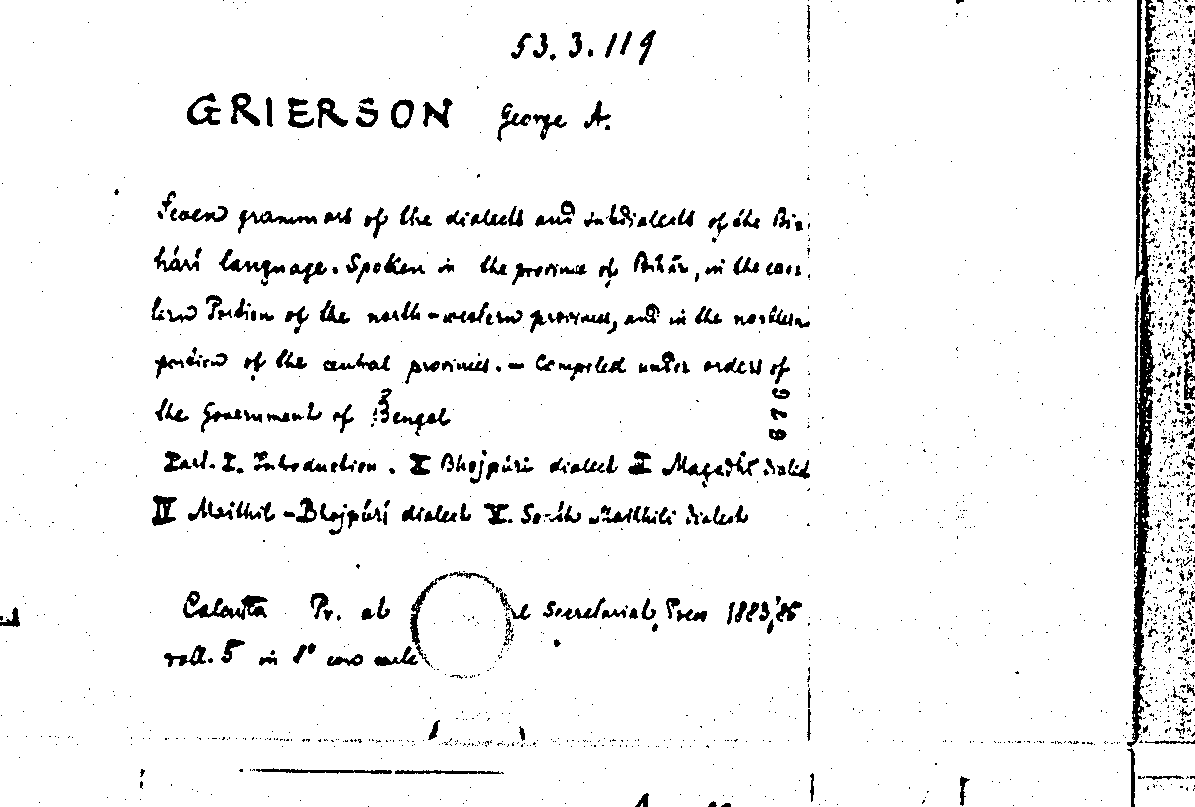 53.3.119
GRIERSON George A.
Seven grammars of the dialects and subdialects of the Bia
hári language. Spoken in the province of Bihār, in the eas
tern Portion of the north-western provinces, and in the northern
portion of the central provinces. - Compiled under orders of
the Government of Bengal
676
Part. I. Introduction. II Bhojpúrí dialect III Magadhí dialect
IV Maithil-Bhojpúrí dialect V. South Maithili dialect
Calcutta Pr. at Secretariat Press 1883/86
voll. 5 in 8°